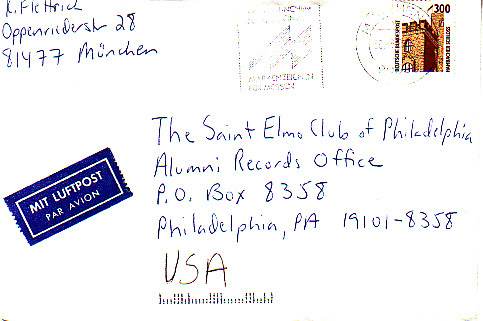 K. Flettrich
Oppenriederstr 28
81477 München
300
DEUTSCHE BUNDESPOST
HAMBACHER SCHLOSS
MIT LUFTPOST
PAR AVION
The Saint Elmo Club of Philadelphia
Alumni Records Office
P.O. Box 8358
Philadelphia, PA 19101-8358
USA